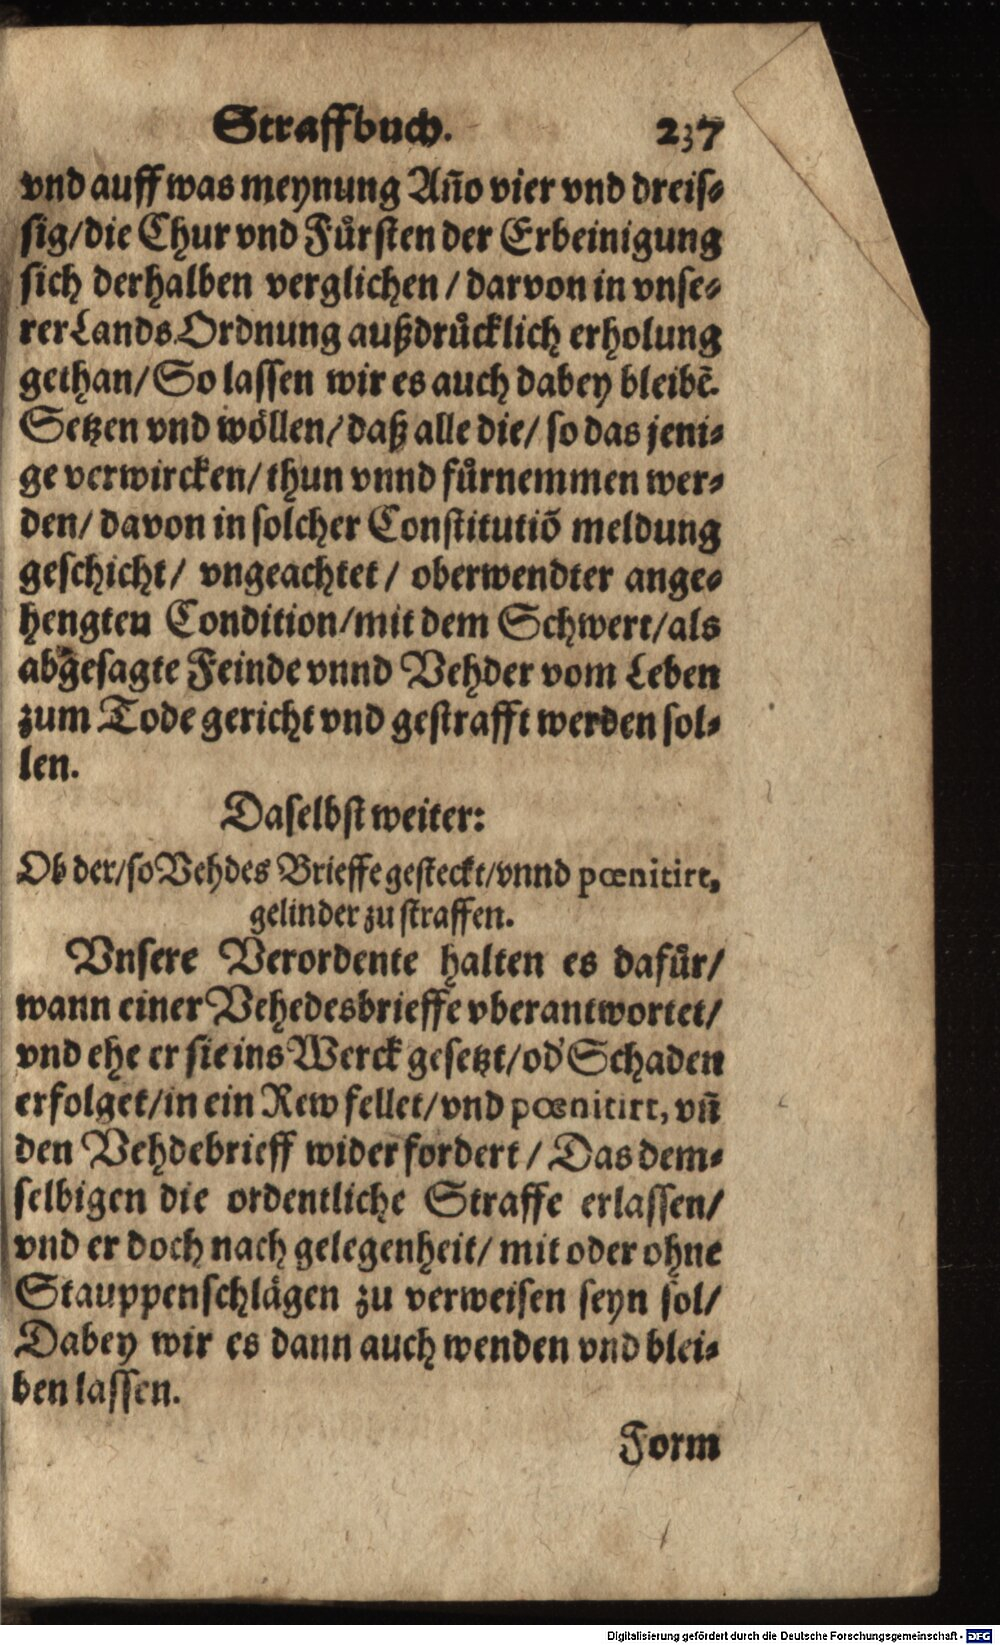 Straffbuch. 237
vnd auff was meynung Añо vier vnd dreis⸗
sig/die Chur vnd Fuͤrsten der Erbeinigung
sich derhalben verglichen / darvon in vnse⸗
rer Lands Ordnung außdruͤcklich erholung
gethan/ So lassen wir es auch dabey bleibẽ.
Setzen vnd woͤllen/ daß alle die/ so das jeni⸗
ge verwircken/ thun vnnd fuͤrnemmen wer⸗
den/ davon in solcher Constitutiõ meldung
geschicht/ vngeachtet / oberwendter ange⸗
hengten Condition/mit dem Schwert/als
abgesagte Feinde vnnd Vehder vom Leben
zum Tode gericht vnd gestrafft werden sol⸗
len.
Daselbst weiter:
Ob der/so Vehdes Brieffe gesteckt/vnnd pœnitirt,
gelinder zu straffen.
Vnsere Verordente halten es dafuͤr/
wann einer Vehedesbrieffe vberantwortet/
vnd ehe er sie ins Werck gesetzt/od' Schaden
erfolget/in ein Rew fellet/vnd pœnitirt, vñ
den Vehdebrieff wider fordert / Das dem⸗
selbigen die ordentliche Straffe erlassen/
vnd er doch nach gelegenheit/ mit oder ohne
Stauppenschlaͤgen zu verweisen seyn sol/
Dabey wir es dann auch wenden vnd blei⸗
ben lassen.
Form
Digitalisierung gefördert durch die Deutsche Forschungsgemeinschaft - DFG